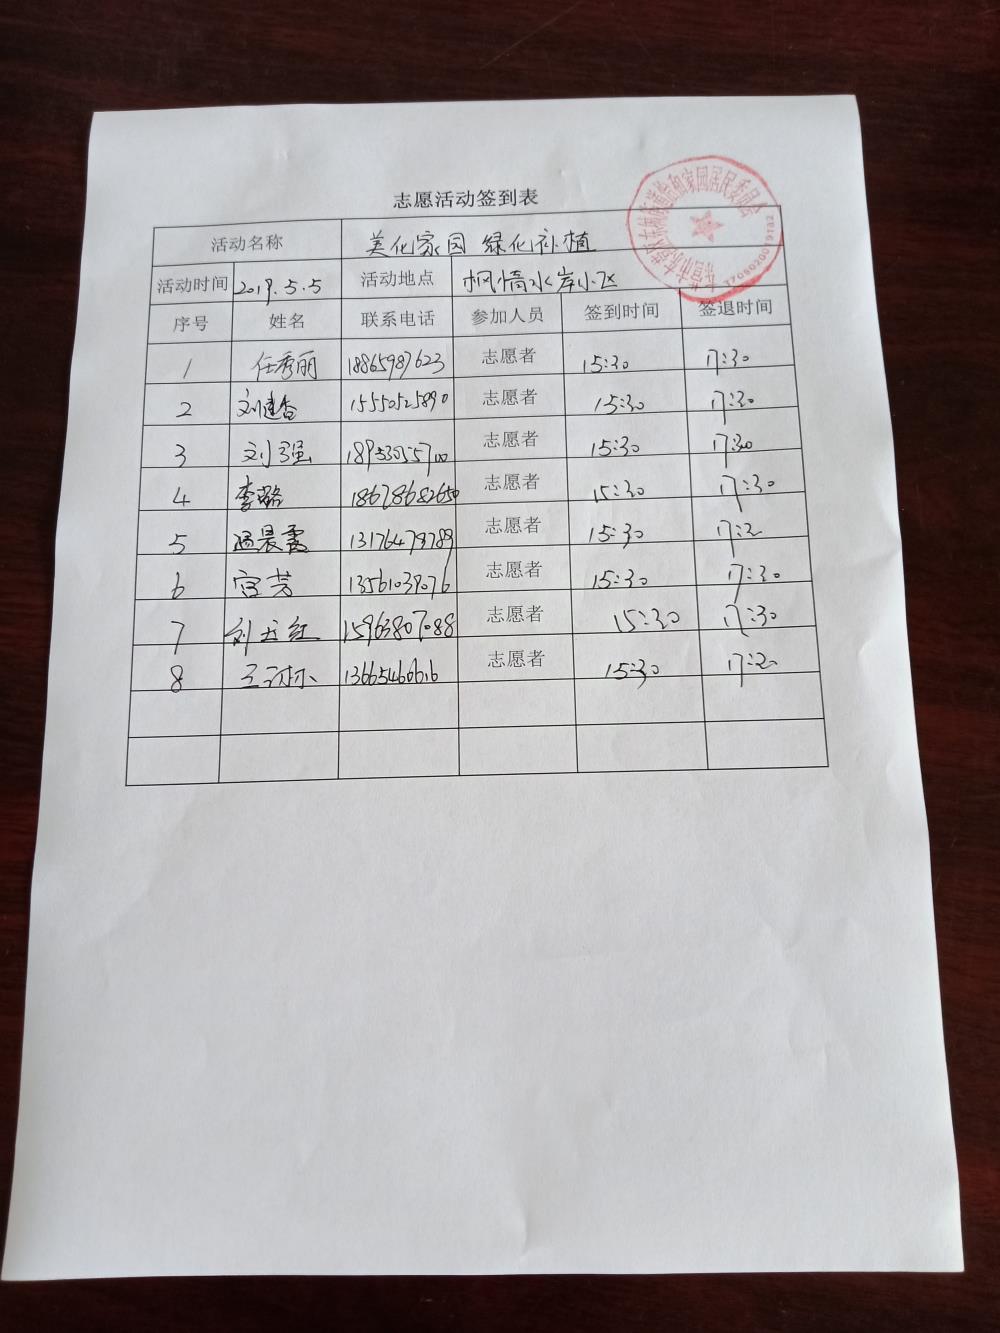 志愿活动签到表
活动名称 美化家园 绿化补植
活动时间 2019.5.5 活动地点 枫情水岸小区
序号 姓名 联系电话 参加人员 签到时间 签退时间
1 任秀丽 18865987623 志愿者 15:30 17:30
2 刘建香 15550525890 志愿者 15:30 17:30
3 刘强 志愿者 15:30 17:30
4 李璐 18678682650 志愿者 15:30 17:30
5 晨霞 13176479789 志愿者 15:30
6 宫芳 13561039076 志愿者 15:30 17:30
7 刘玉红 15963807088 志愿者 15:30 17:30
8 13665466616 志愿者 15:30